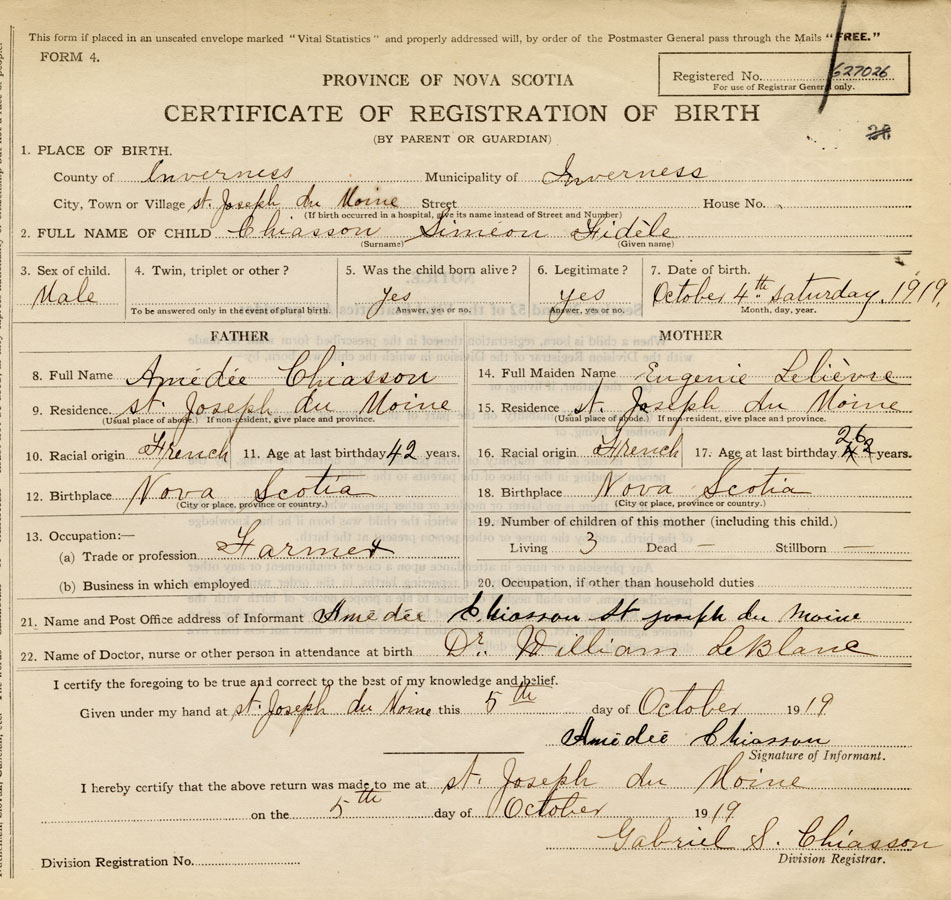 This form if placed in an unsealed envelope marked "Vital Statistics" and properly addressed will, by order of the Postmaster General pass through the Mails "FREE."
FORM 4.
Registered No. 627026
For use of Registrar General only.
PROVINCE OF NOVA SCOTIA
CERTIFICATE OF REGISTRATION OF BIRTH
(BY PARENT OR GUARDIAN)
1. PLACE OF BIRTH.
County of Inverness Municipality of Inverness
City, Town or Village St. Joseph du Moine Street House No.
(If birth occurred in a hospital, give its name instead of Street and Number)
2. FULL NAME OF CHILD Chiasson Siméon Fidèle
(Surname) (Given name)
3. Sex of child. 4. Twin, triplet or other? 5. Was the child born alive? 6. Legitimate? 7. Date of birth.
Male yes yes October 4th Saturday, 1919,
To be answered only in the event of plural birth. Answer, yes or no. Answer, yes or no. Month, day, year.
FATHER
8. Full Name Amédée Chiasson
9. Residence. St. Joseph du Moine
(Usual place of abode.) If non-resident, give place and province.
10. Racial origin French 11. Age at last birthday 42 years.
12. Birthplace Nova Scotia
(City or place, province or country.)
13. Occupation:—
(a) Trade or profession Farmer
(b) Business in which employed
MOTHER
14. Full Maiden Name Eugenie Lelièvre
15. Residence St. Joseph du Moine
(Usual place of abode.) If non-resident, give place and province.
16. Racial origin French 17. Age at last birthday 26 years.
18. Birthplace Nova Scotia
(City or place, province or country.)
19. Number of children of this mother (including this child.)
Living 3 Dead — Stillborn —
20. Occupation, if other than household duties
21. Name and Post Office address of Informant Amédée Chiasson St Joseph du Moine
22. Name of Doctor, nurse or other person in attendance at birth Dr. William LeBlanc
I certify the foregoing to be true and correct to the best of my knowledge and belief.
Given under my hand at St. Joseph du Moine this 5th day of October 1919
Amédée Chiasson
Signature of Informant.
I hereby certify that the above return was made to me at St. Joseph du Moine
on the 5th day of October 1919
Gabriel S. Chiasson
Division Registrar.
Division Registration No.